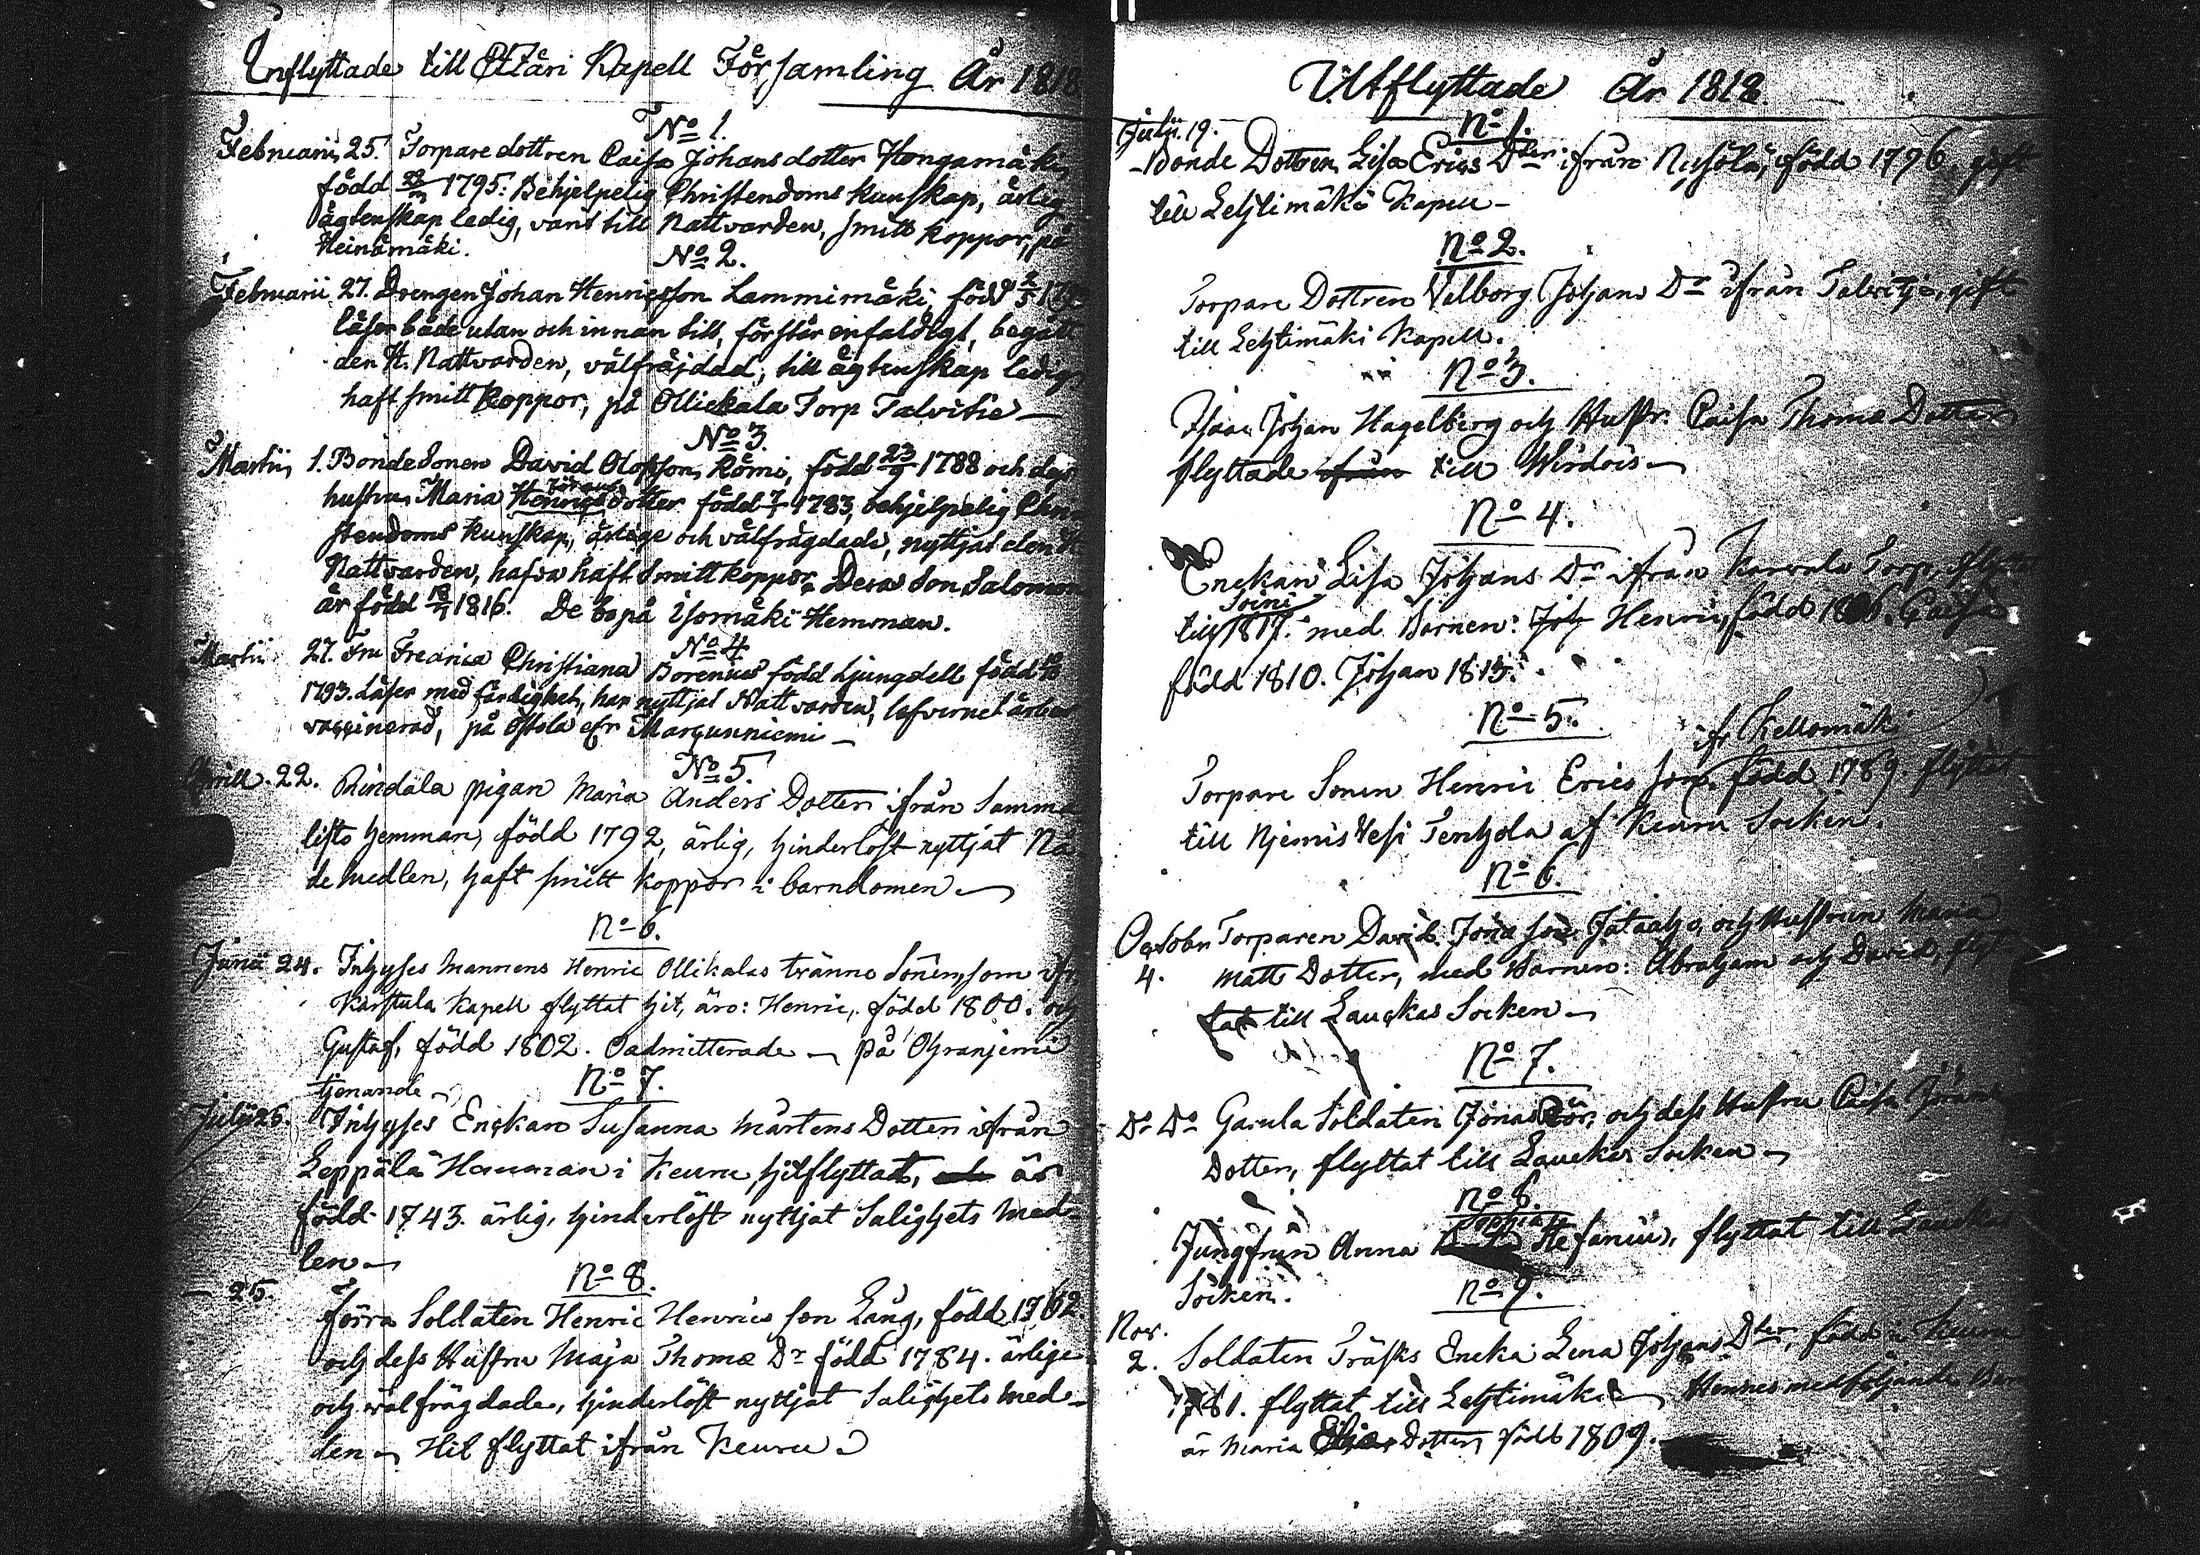 Inflyttade till Etzäri Kapell Församling År 1818
No 1.
Februarii 25. Torpare dottren Caisa Johansdotter Hongamäki,
född 1795: Behjelpelig Christendoms kunskap, ärlig
ägtenskap ledig, vand till Nattvarden, smitt koppor, på
Heinämäki.
No 2.
Februarii 27. Drengen Johan Henricsson Lammimäki, född
läser både utan och innan till, förstår enfaldigt, begått
den H. Nattvarden, välfräjdad, till ägtenskap ledig,
haft smittkoppor, på Ollickala Torp Talvitie
No 3.
Martii, 1. Bonde Sonen David Olofsson, Römi, född 23/9 1788 och dess
hustru, Maria Henrics Jörans dotter född 1783, behjelpelig Chri-
stendoms kunskap, ärlige och välfrägdade, nyttjat den H.
Nattvarden, hafva haft smittkoppor. Deras Son Salomon
är född 1816. De bo på Isomäki Hemman.
No 4.
Martii 27. Fru Fredrica Christiana Borenius född Ljungdell född
1793. Läser med färdighet, har nyttjat Nattvarden, lefvernet ärbar
vaccinerad, på Ostola efr Margunniemi
No 5.
Aprill. 22. Rindala pigan Maria Anders Dotter ifrån Samma-
listo hemman, född 1792, ärlig, hinderlöst nyttjat Nå-
de medlen, haft smitt koppor i barndomen
No 6.
Junii 24. Inhyses Mannens Henric Ollikalas tvänne Söner, som ifr.
Karstula Kapell flyttat hit, äro: Henric, född 1800. och
Gustaf, född 1802. Oadmitterade på Ohranjemi
tjenande
No 7.
Julii 25. Inhyses Enckan Susanna Mårtens Dotter ifrån
Leppälä Hemman i Keuru hitflyttat, är
född 1743. ärlig, hinderlöst nyttjat Salighets med-
len
No 8.
— 25. förra Soldaten Henric Henrics son Lång, född 1762.
och dess Hustru Maja Thomæ Dr född 1784. ärlige
och välfrägdade, hinderlöst nyttjat Salighets med-
len Hit flyttat ifrån Keuru
Utflyttade År 1818
No 1.
Julii. 19.
Bonde Dottren Lisa Erics Dter ifrån Nissölä, född 1796, gift
till Lehtimäki Kapell
No 2.
Torpare Dottren Valborg Johans Dr ifrån Talvitje, gift
till Lehtimäki Kapell.
No 3.
Johan Hagelberg och Hustr. Caisa Thomæ Dotter
flyttade ifrån till Wirdois
No 4.
Enckan Lisa Johans Dr ifrån Torp, flytt
till Soini 1817. med Barnen: Joh Henric, född Caisa
född 1810. Johan 1815.
No 5.
ifr Kellomäki
Torpare Sonen Henric Erics son. född 1789. flyttat
till Njemis Wesi Tenhola af Keuru Socken.
No 6.
Octobr Torparen David Jona son Jataaho, och Hustrun Maria
4. Matt Dotter, med Barnen: Abraham och David, flyt
tat till Lauckas Socken
No 7.
Do Do Gamla Soldaten Jonas Rör, och dess Hustru Caisa Jörans
Dotter, flyttat till Lauckas Socken
No 8
Jungfrun Anna Sophia Stefanius, flyttat till Lauckas
Socken.
No 9.
Nov.
2. Soldaten Träsks Encka Lena Johans Dter, född i Keuru
1781. flyttat till Lehtimäki Hennes medföljande Barn
är Maria Dotter, född 1809.